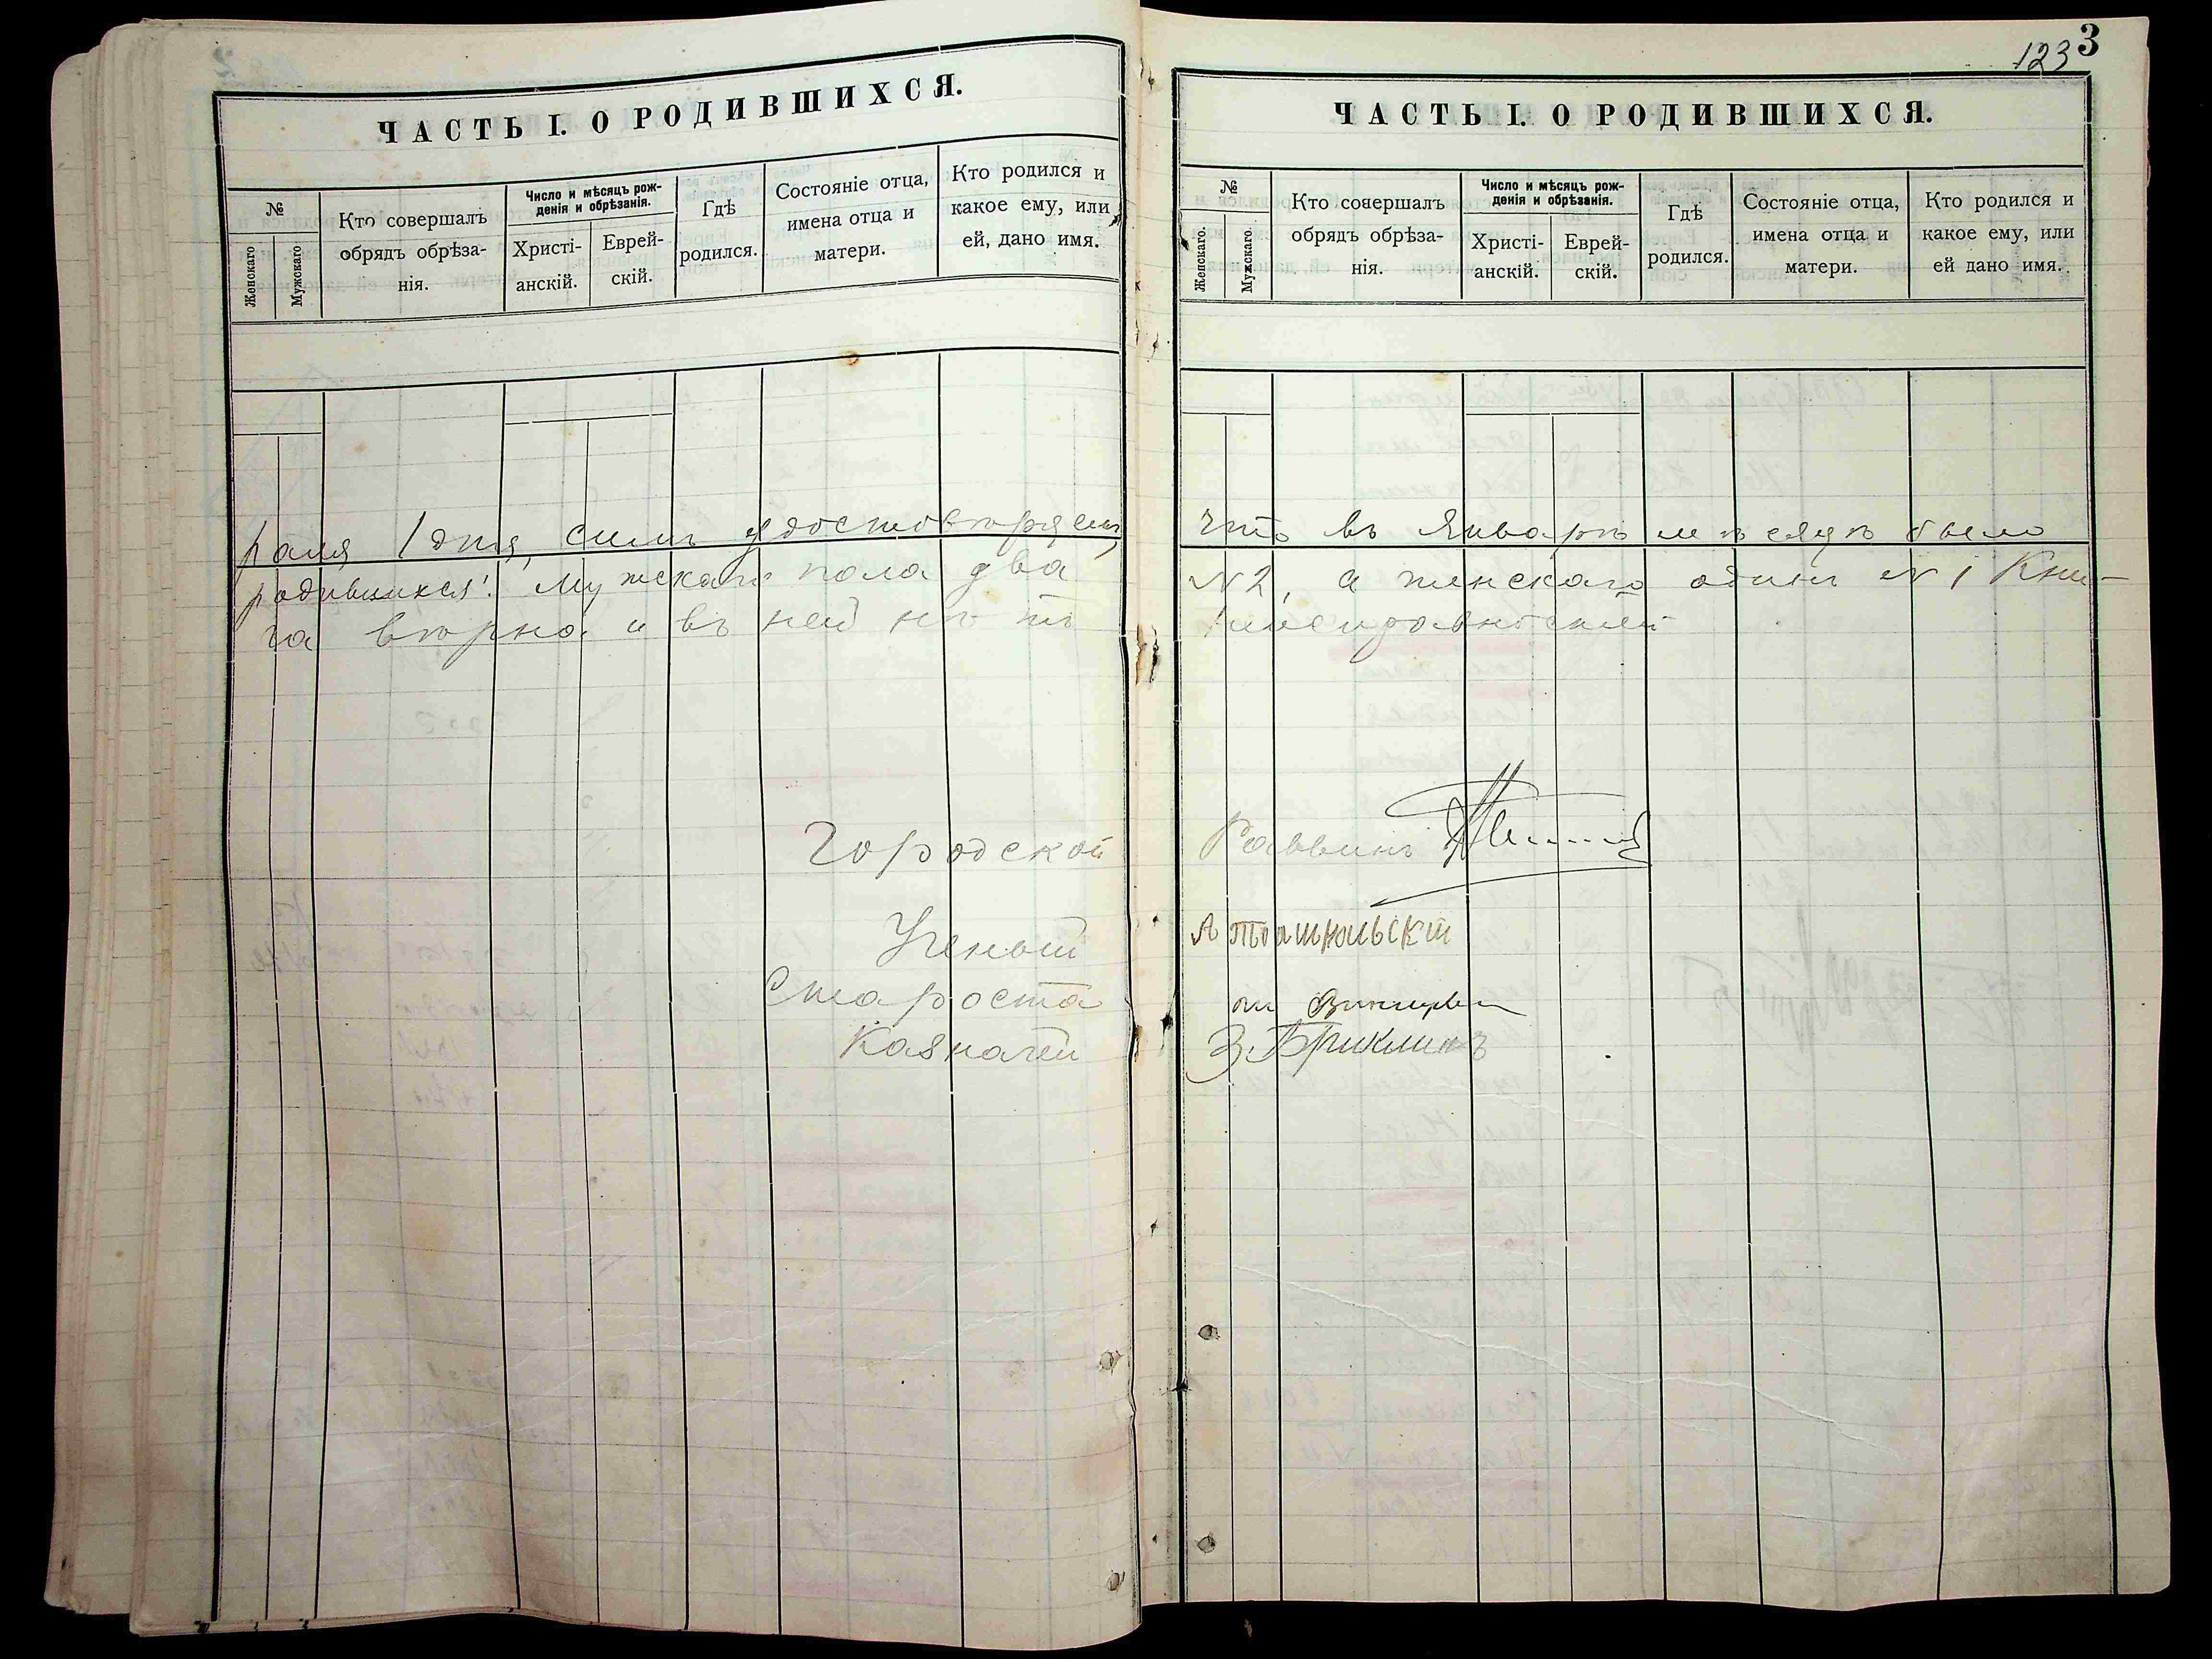 ЧАСТЬ I. О РОДИВШИХСЯ.
№
Женскаго
Мужскаго
Кто совершалъ
обрядъ обрѣза-
нія.
Число и мѣсяцъ рож-
денія и обрѣзанія.
Христі-
анскій.
Еврей-
скій.
Гдѣ
родился.
Состояніе отца,
имена отца и
матери.
Кто родился и
какое ему, или
ей, дано имя.
раля 1 дня, симъ удостовѣряемъ,
родившихся: мужскаго пола два
га вѣрна и въ ней нѣтъ
Городской
Ученый
Староста
Казначей
123
3
ЧАСТЬ I. О РОДИВШИХСЯ.
№
Женскаго.
Мужскаго.
Кто совершалъ
обрядъ обрѣза-
нія.
Число и мѣсяцъ рож-
денія и обрѣзанія.
Христі-
анскій.
Еврей-
скій.
Гдѣ
родился.
Состояніе отца,
имена отца и
матери.
Кто родился и
какое ему, или
ей дано имя.
что въ Январѣ мѣсяцѣ было
№ 2, а женскаго одинъ № 1 Кни-
неисправностей
Раввинъ
З. Бриклинъ